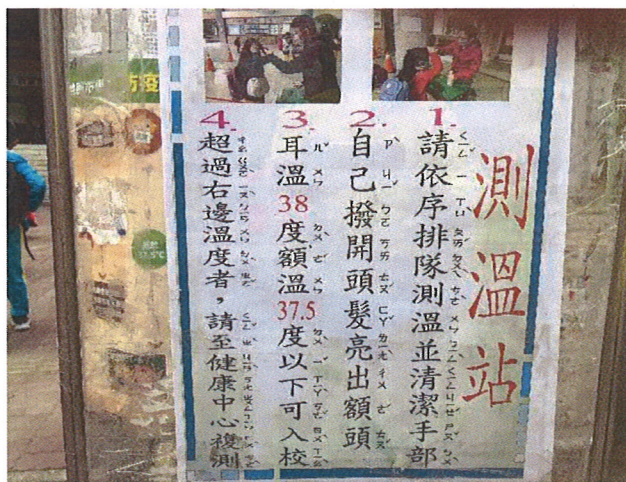 測溫站
1.
請依序排隊測溫並清潔手部
2.
自己撥開頭髮亮出額頭
3.
耳溫38度額溫37.5度以下可入校
4.
超過右邊溫度者，請至健康中心複測
防疫